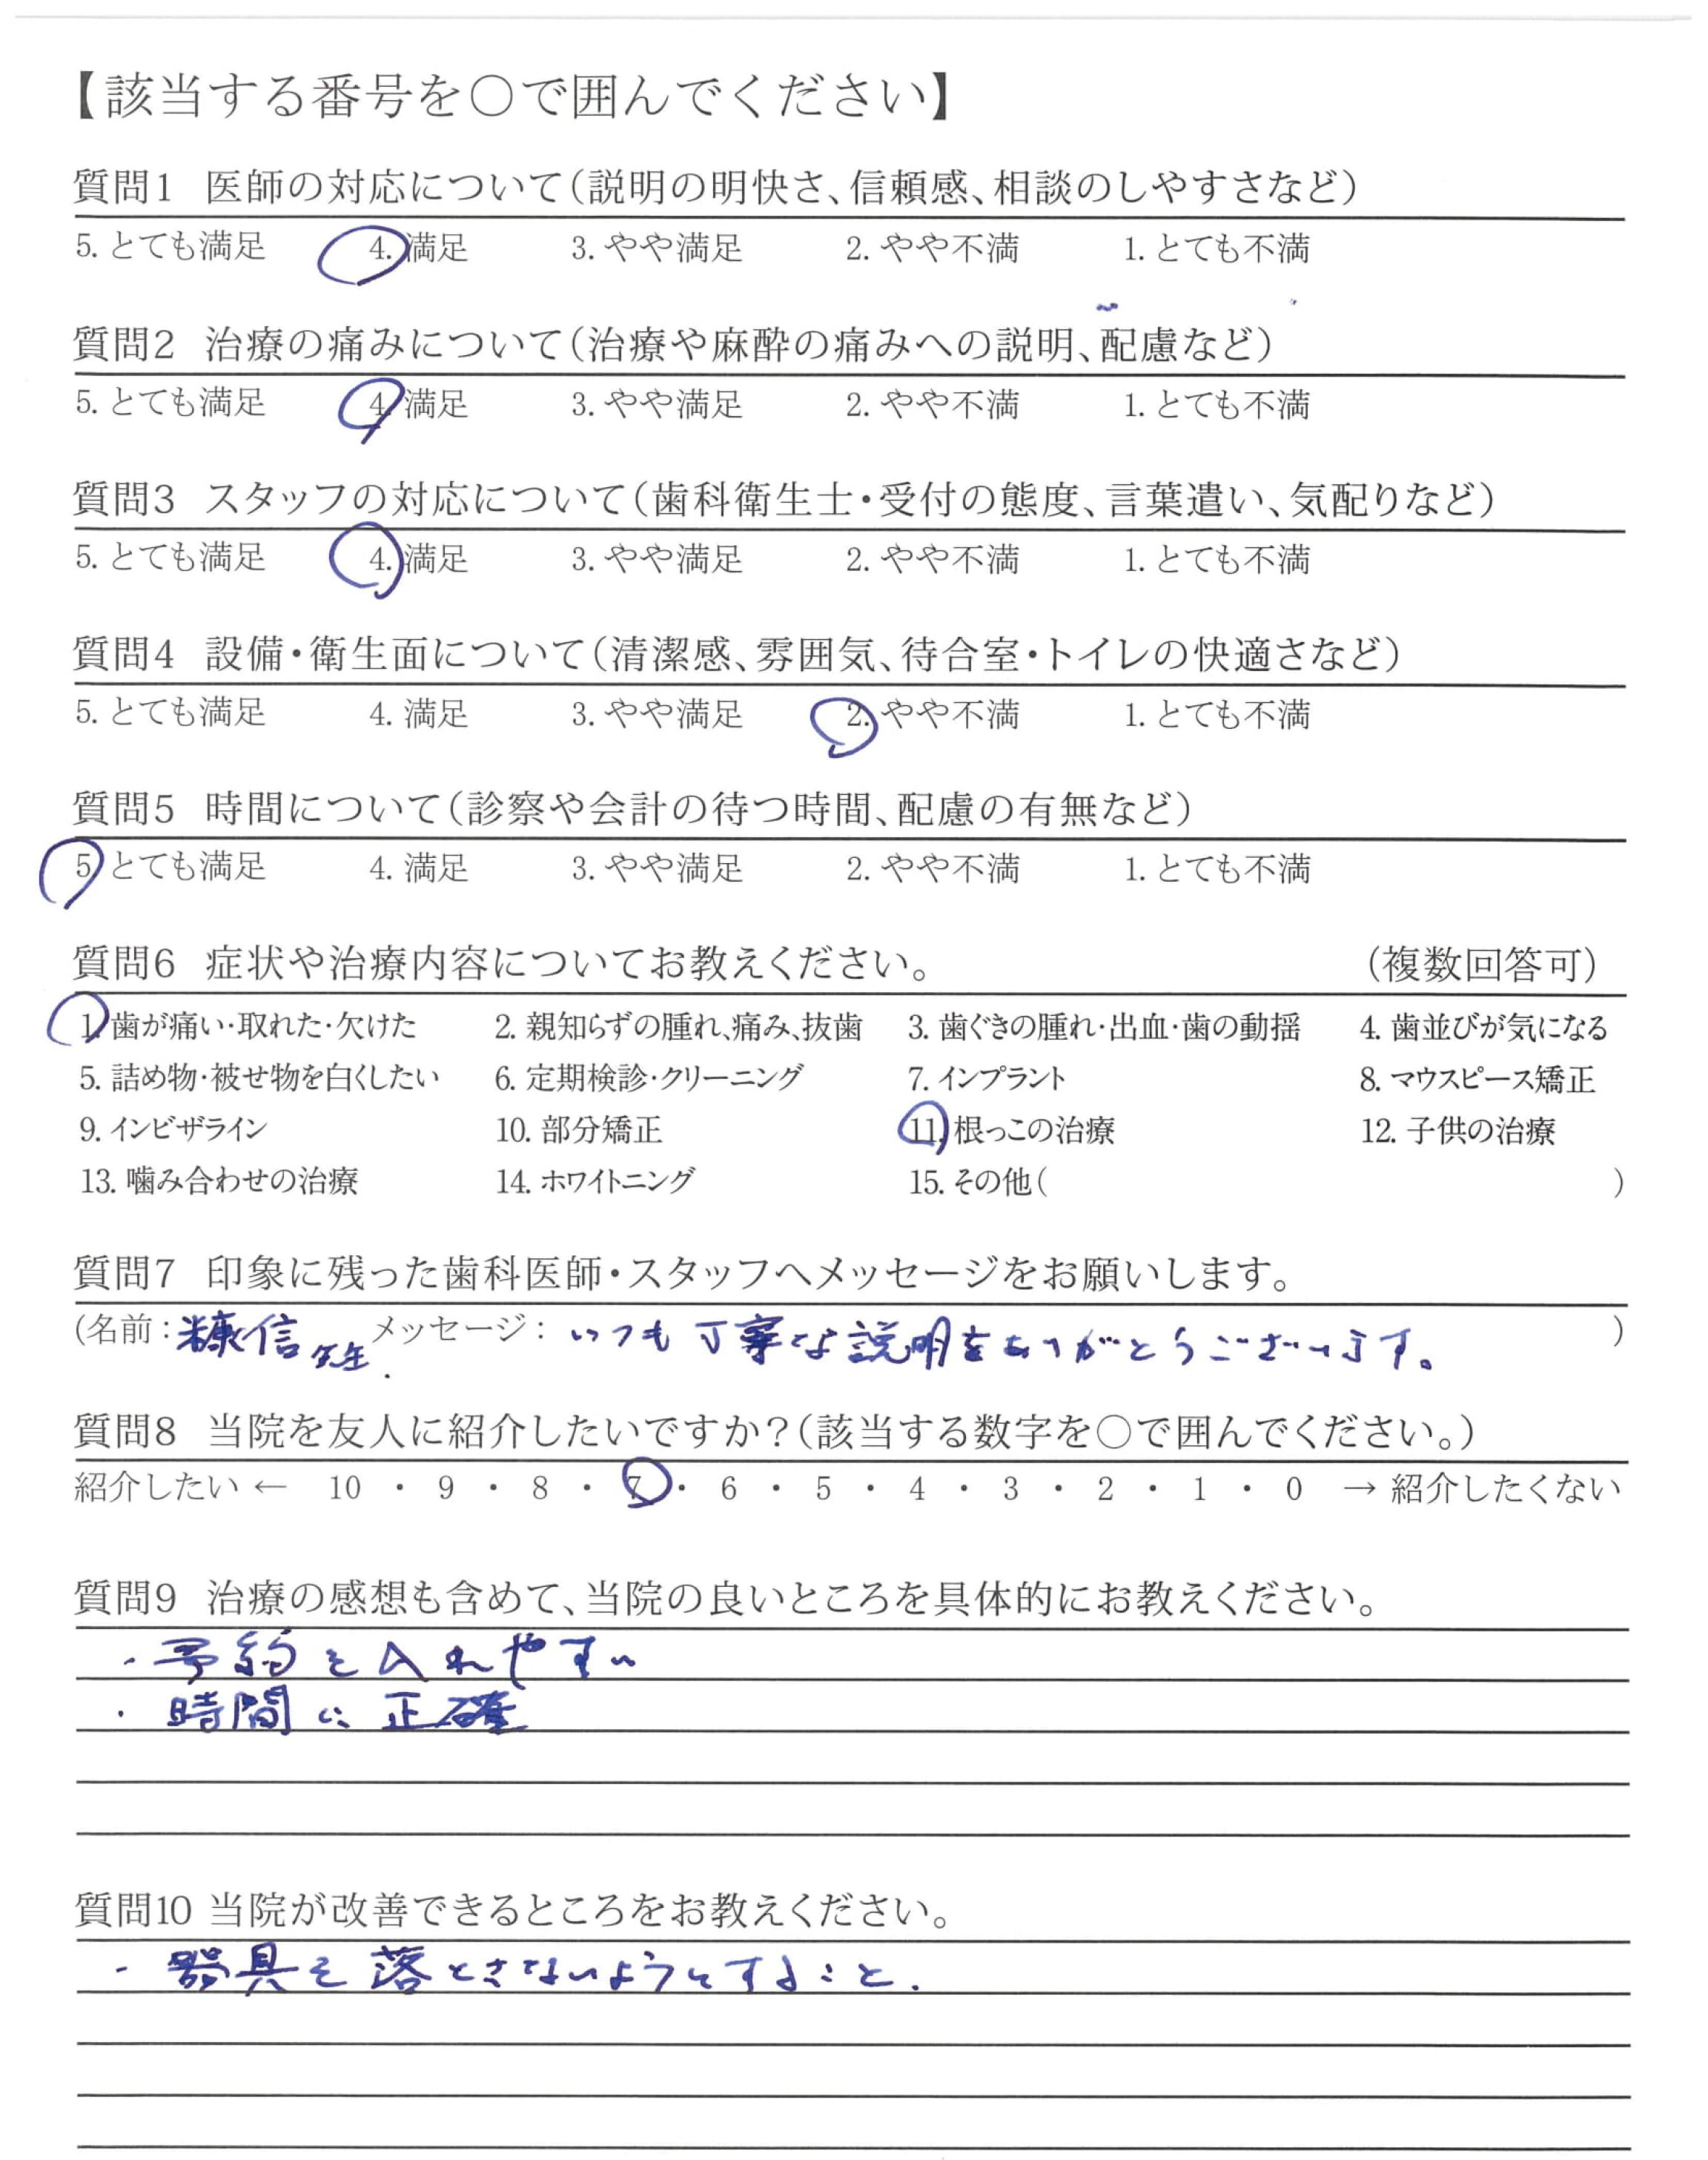 【該当する番号を○で囲んでください】
質問1 医師の対応について（説明の明快さ、信頼感、相談のしやすさなど）
5. とても満足 4. 満足 3. やや満足 2. やや不満 1. とても不満
質問2 治療の痛みについて（治療や麻酔の痛みへの説明、配慮など）
5. とても満足 4. 満足 3. やや満足 2. やや不満 1. とても不満
質問3 スタッフの対応について（歯科衛生士・受付の態度、言葉遣い、気配りなど）
5. とても満足 4. 満足 3. やや満足 2. やや不満 1. とても不満
質問4 設備・衛生面について（清潔感、雰囲気、待合室・トイレの快適さなど）
5. とても満足 4. 満足 3. やや満足 2. やや不満 1. とても不満
質問5 時間について（診察や会計の待つ時間、配慮の有無など）
5. とても満足 4. 満足 3. やや満足 2. やや不満 1. とても不満
質問6 症状や治療内容についてお教えください。 （複数回答可）
1. 歯が痛い・取れた・欠けた 2. 親知らずの腫れ、痛み、抜歯 3. 歯ぐきの腫れ・出血・歯の動揺 4. 歯並びが気になる
5. 詰め物・被せ物を白くしたい 6. 定期検診・クリーニング 7. インプラント 8. マウスピース矯正
9. インビザライン 10. 部分矯正 11. 根っこの治療 12. 子供の治療
13. 噛み合わせの治療 14. ホワイトニング 15. その他（ ）
質問7 印象に残った歯科医師・スタッフへメッセージをお願いします。
（名前：糠信先生. メッセージ：いつも丁寧な説明をありがとうございます。 ）
質問8 当院を友人に紹介したいですか？（該当する数字を○で囲んでください。）
紹介したい ← 10 ・ 9 ・ 8 ・ 7 ・ 6 ・ 5 ・ 4 ・ 3 ・ 2 ・ 1 ・ 0 → 紹介したくない
質問9 治療の感想も含めて、当院の良いところを具体的にお教えください。
・予約を入れやすい
・時間に正確
質問10 当院が改善できるところをお教えください。
・器具を落とさないようにすること.